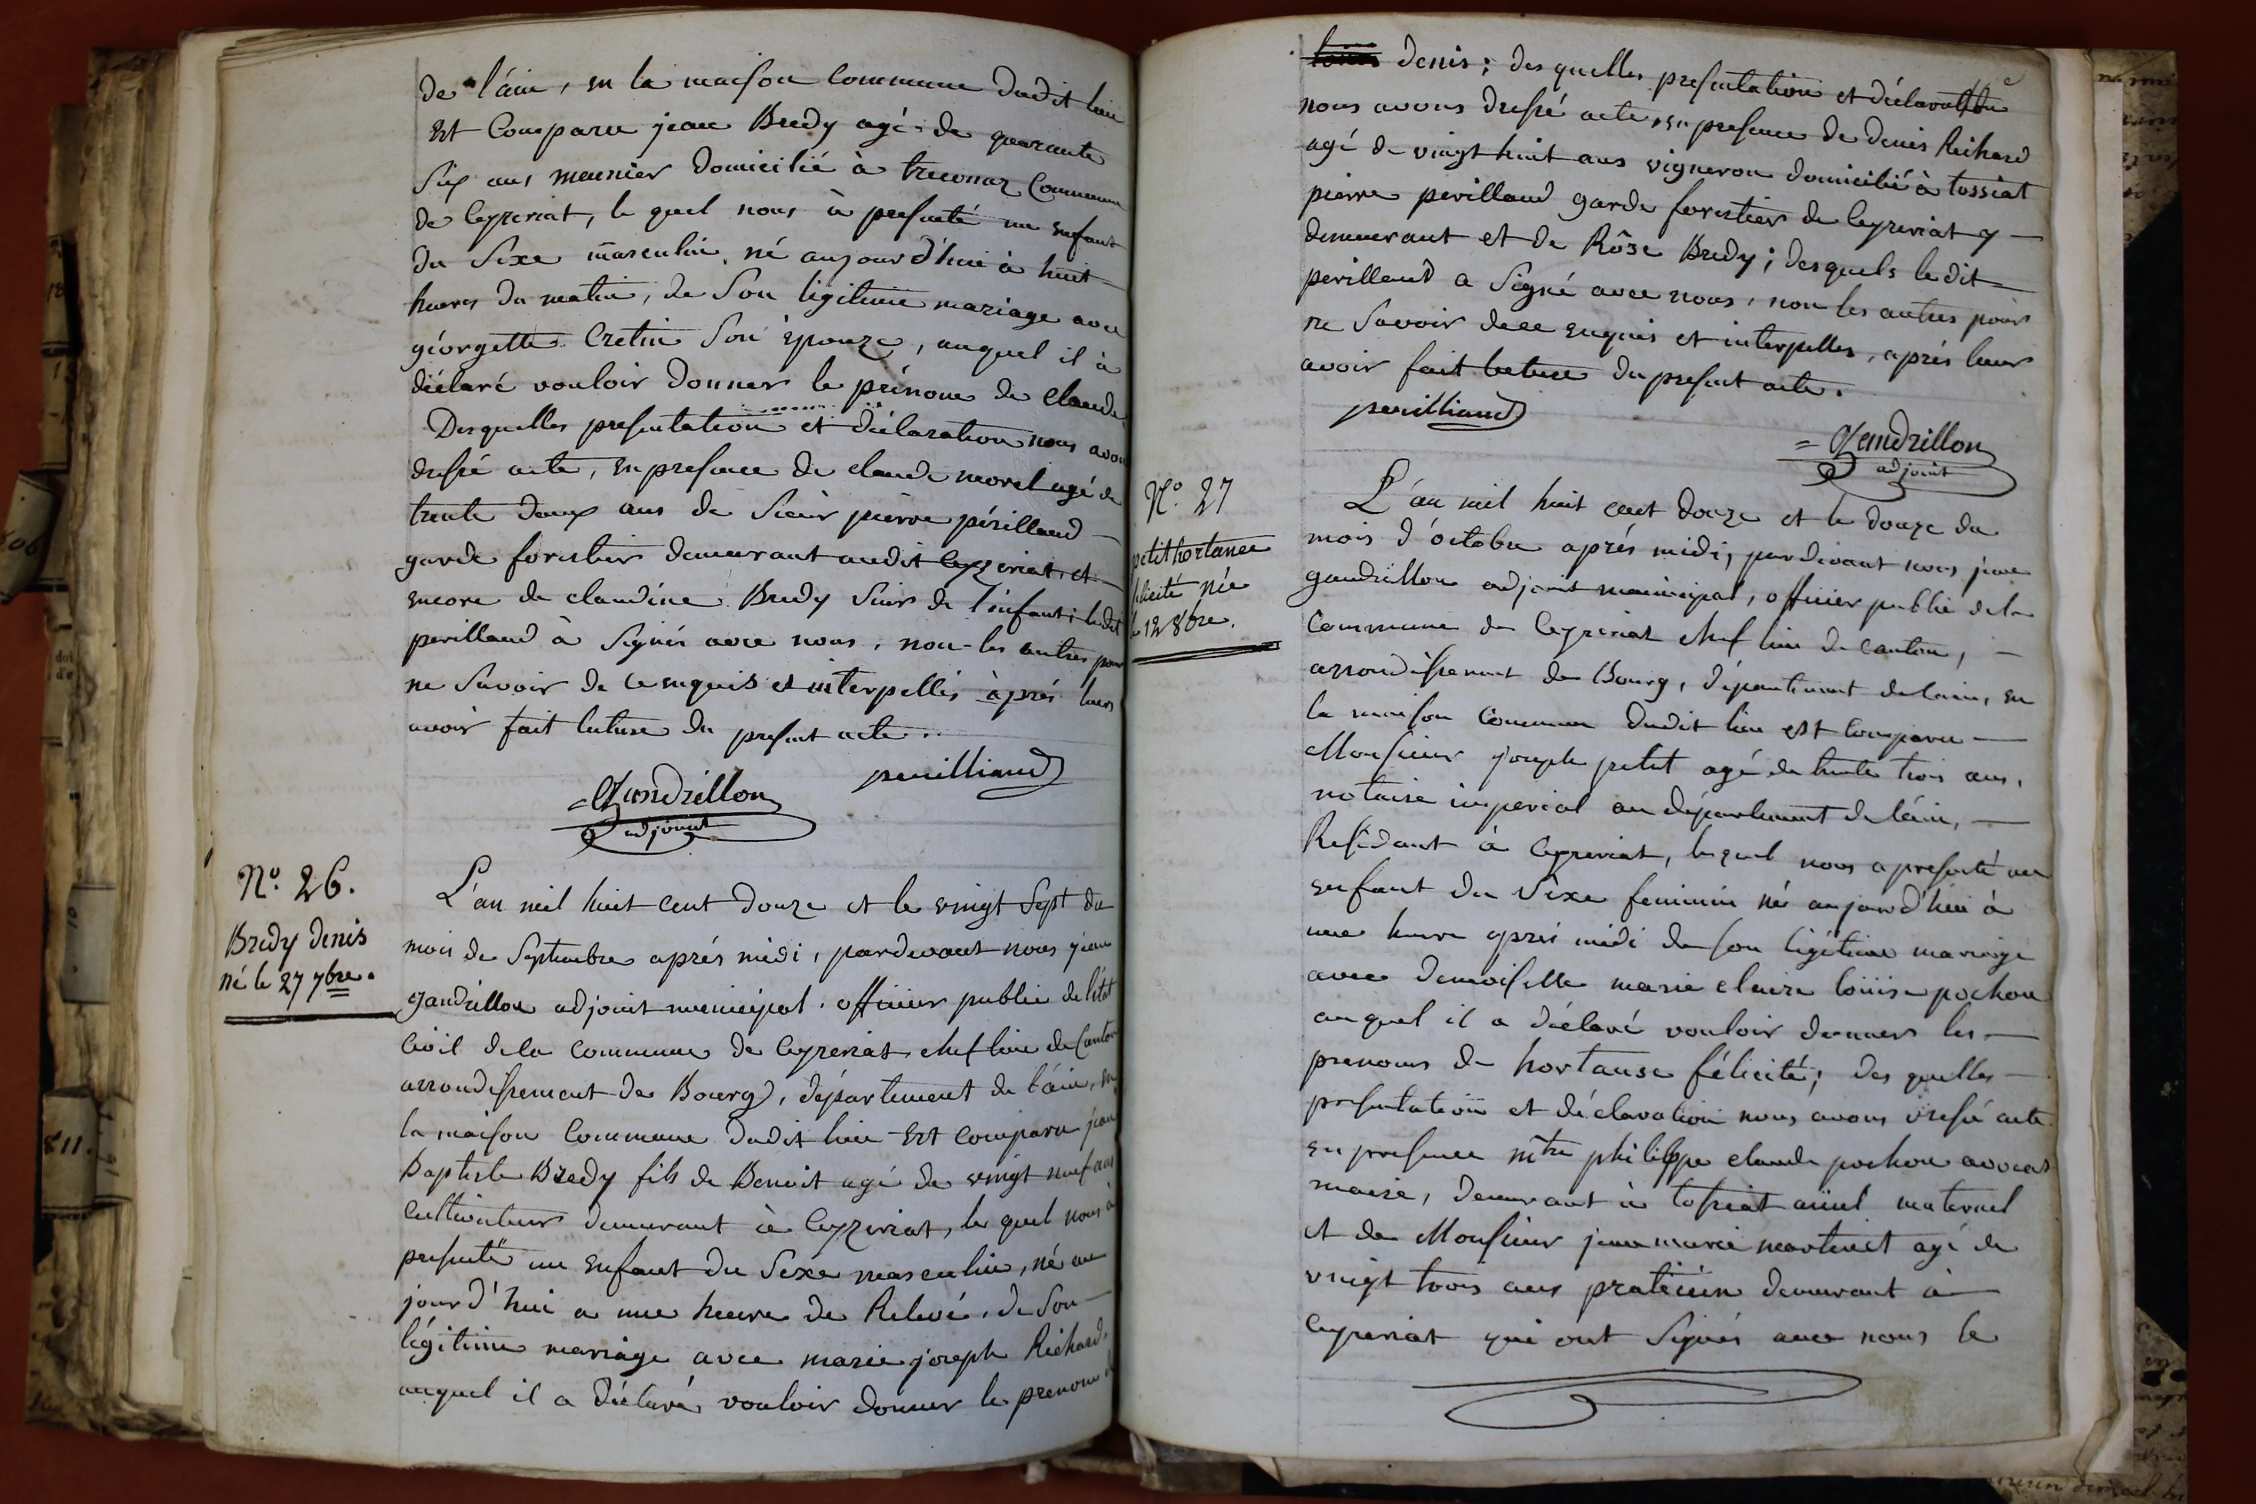 de l'ain, en la maison Commune dudit lieu
Est Comparu jean Bredy agé de quarante
Six ans meunier domicilié à treconnaz Commune
de Ceyzeriat, le quel nous à presenté un enfant
du Sexe masculin, né aujourd'hui à huit
heures du matin, de Son légitime mariage avec
géorgette Cretin Son Epouze, auquel il à
déclaré vouloir donner le prénom de Claude
Desquelles presentation et déclaration nous avons
dressé acte, en presence de claude morel agé de
trente deux ans de Sieur pierre périlland
garde forestier demeurant audit Ceyzeriat, et
encore de claudine Bredy Sœur de l'enfant; ledit
perilland à Signés avec nous, non les autres pour
ne Savoir de ce enquis et interpellés àprés leurs
avoir fait lecture du present acte.
perilliand
Gandrillon
adjoint
N.o 26.
Bredy denis
né le 27 7bre.
L'an mil huit cent douze et le vingt Sept du
mois de Septembre aprés midi, pardevant nous jean
gandrillon adjoint municipal, officier public de l'état
Civil dela commune de Ceyzeriat, chef lieu de Canton
arrondissement de Bourg, département de l'ain, en
la maison Commune dudit lieu Est Comparu jean
Baptiste Bredy fils de Benoit agé de vingt neuf ans
Cultivateur demeurant à Ceyzeriat, le quel nous à
presenté un enfant du Sexe masculin, né au
jourd'hui a une heure de Relevé, de Son
légitime mariage avec marie joseph Richard,
auquel il a déclaré vouloir donner le prenom d
denis; des quelles presentation et déclaration
nous avons dressé acte, en presence de denis Richard
agé de vingt huit ans vigneron domicilié à tossiat
pierre perilland garde forestier de Ceyzeriat y
demeurant et de Rôse Bredy; desquels le dit
perilland a Signé avec nous, non les autres pour
ne Savoir de ce enquis et interpellés, aprés leur
avoir fait lecture du present acte.
perilliand
Gandrillon
adjoint
N.o 27
petit hortance
félicité née
le 12 8bre.
L'an mil huit cent douze et le douze du
mois d'octobre aprés midi, pardevant nous jean
gandrillon adjoint municipal, officier public dela
Commune de Ceyzeriat chef lieu de canton,
arrondissement de Bourg, département delain, en
la maison Commune dudit lieu est comparu
Monsieur joseph petit agé de trente trois ans,
notaire imperial au département de l'ain,
Residant à Ceyzeriat, lequel nous a presenté un
enfant du Sexe feminin né aujourd'hui à
une heure aprés midi de son légitime mariage
avec demoiselle marie claire louise pochon
auquel il a déclaré vouloir donner les
prenoms de hortanse félicité; des quelles
presentation et déclaration nous avons dressé acte
en presence mtre philippe claude pochon avocat
maire, demeurant à tossiat aieul maternel
et de Monsieur jean marie martinet agé de
vingt trois ans praticien demeurant à
Ceyzeriat qui ont Signés avec nous le